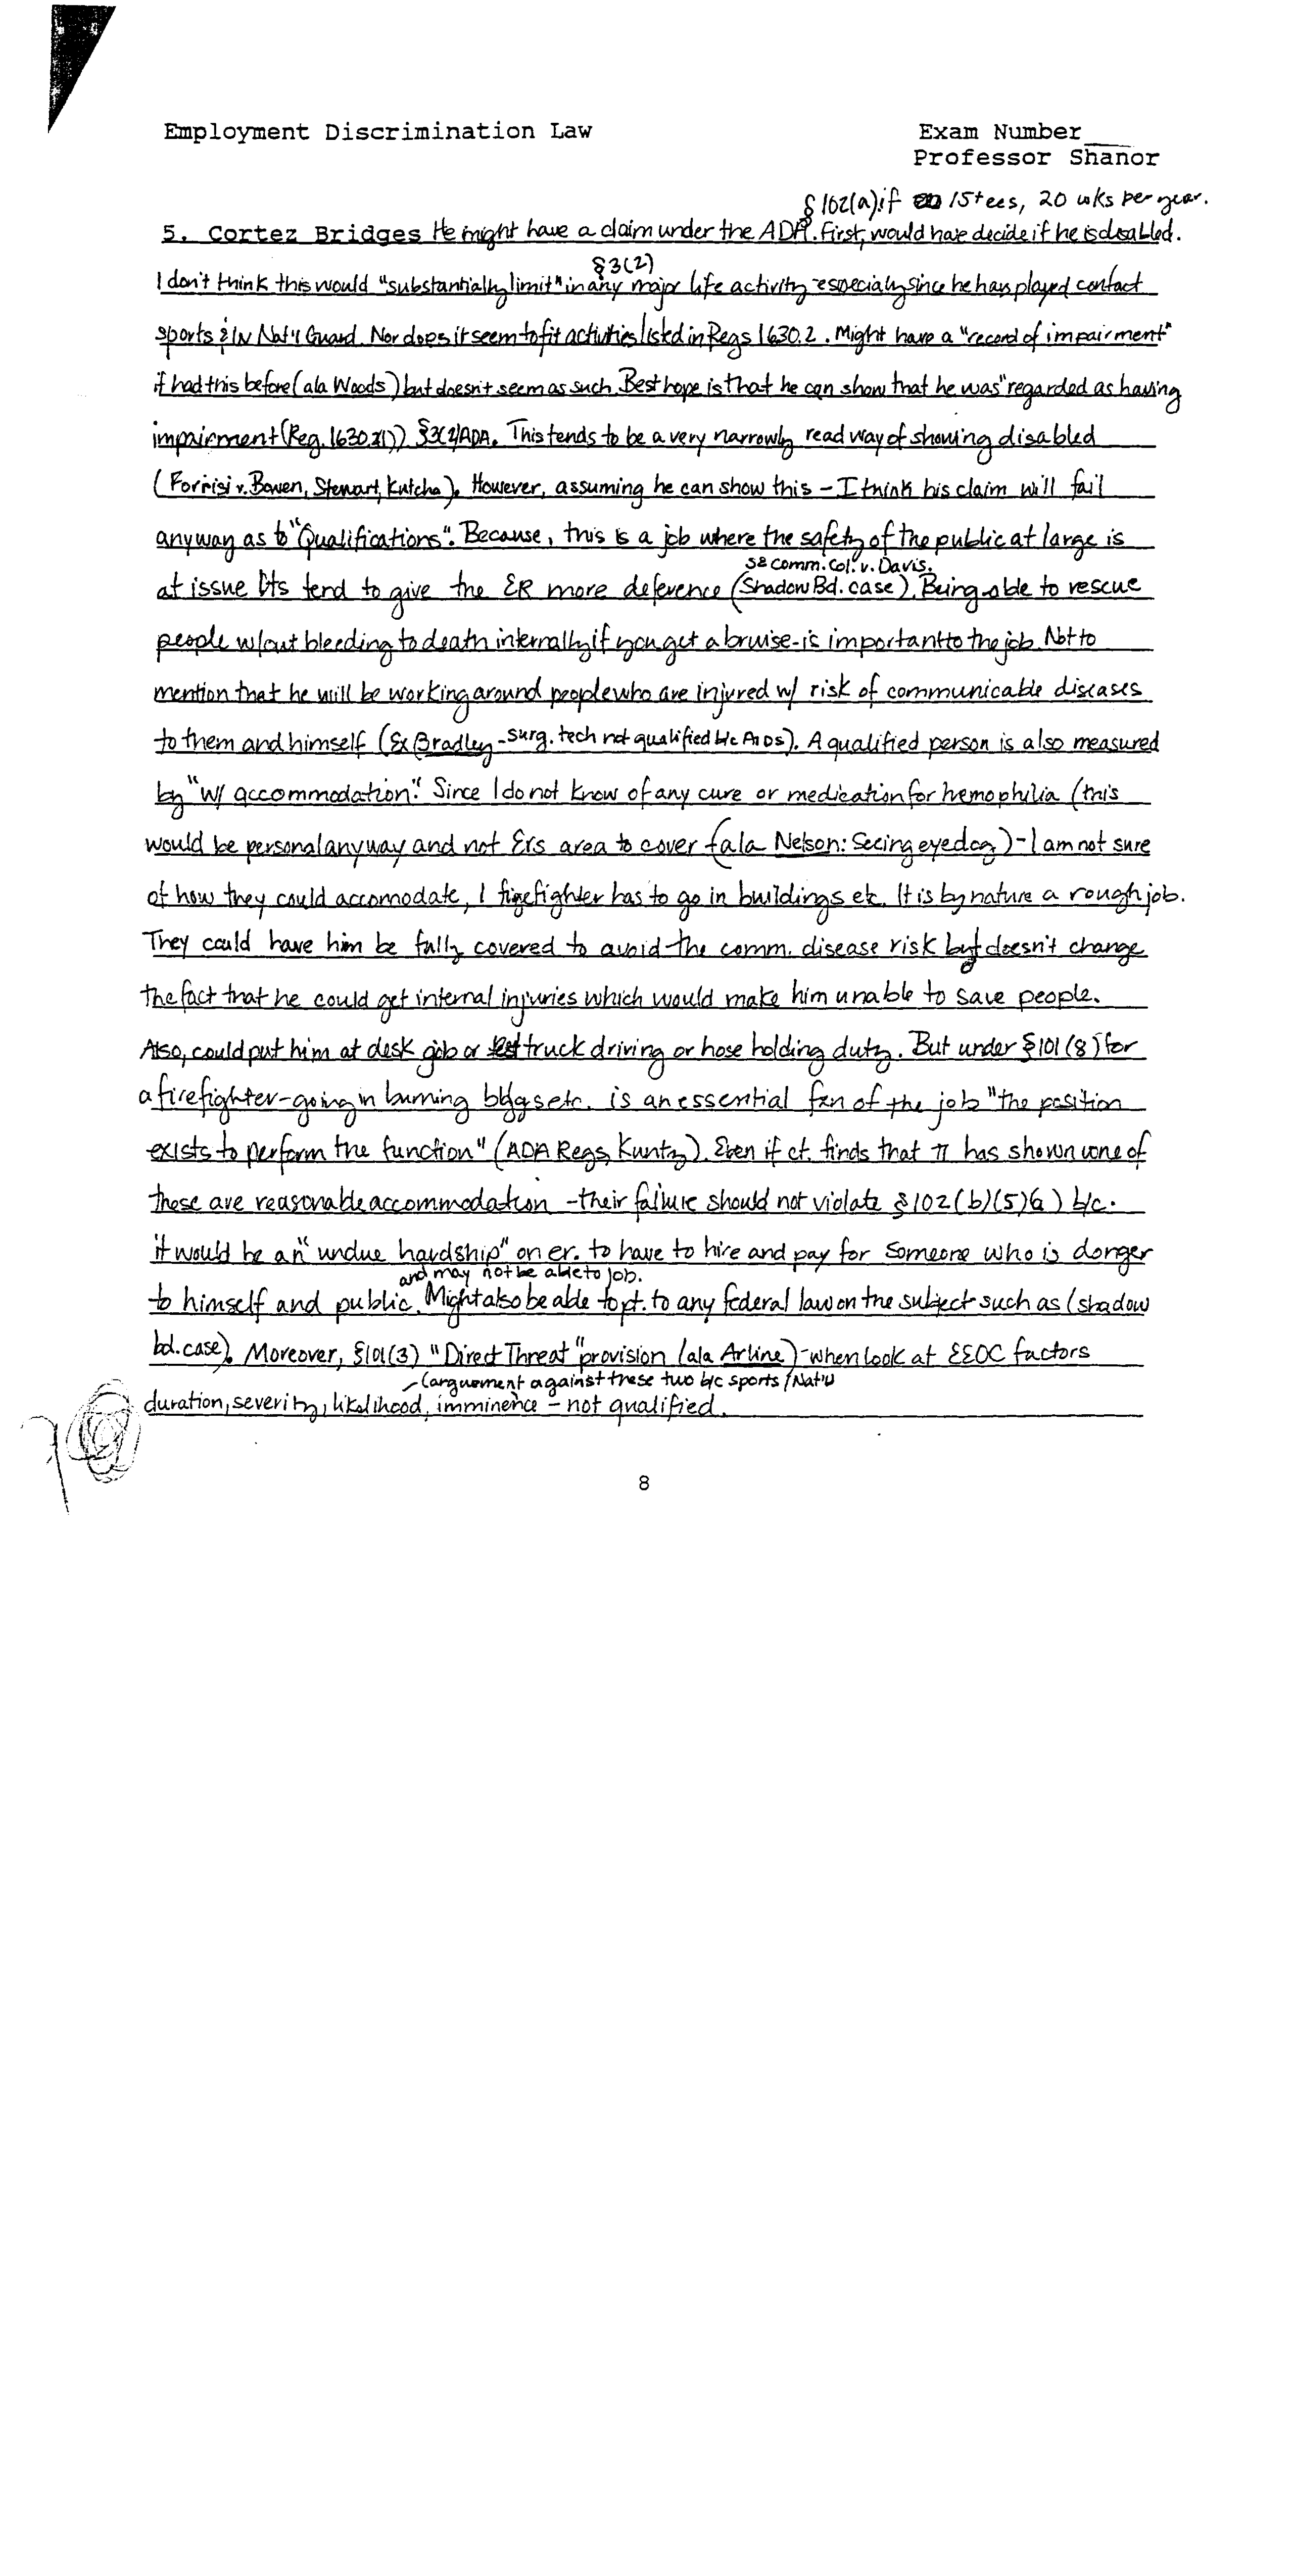 Employment Discrimination Law
Exam Number
Professor Shanor
§102(a) if 15+ees, 20 wks per year.
5. Cortez Bridges He might have a claim under the ADA. First, would have decide if he is disabled.
§3(2)
I don't think this would "substantially limit" in any major life activity especially since he has played contact
sports & in Nat'l Guard. Nor does it seem to fit activities listed in Regs 1630.2. Might have a "record of impairment"
if had this before (ala Woods) but doesn't seem as such. Best hope is that he can show that he was "regarded as having
impairment (Reg. 1630.2(l)) §3(2) ADA. This tends to be a very narrowly read way of showing disabled
(Forrisi v. Bowen, Stewart, Kutcha). However, assuming he can show this - I think his claim will fail
anyway as to "Qualifications". Because, this is a job where the safety of the public at large is
SE Comm. Col. v. Davis.
at issue Cts tend to give the ER more deference (Shadow Bd. case). Being able to rescue
people w/out bleeding to death internally if you get a bruise - is important to the job. Not to
mention that he will be working around people who are injured w/ risk of communicable diseases
to them and himself (Ex Bradley - surg. tech not qualified b/c AIDS). A qualified person is also measured
by "w/ accommodation". Since I do not know of any cure or medication for hemophilia (this
would be personal anyway and not ERs area to cover (ala Nelson: Seeing eye dog) - I am not sure
of how they could accomodate, 1 firefighter has to go in buildings etc. It is by nature a rough job.
They could have him be fully covered to avoid the comm. disease risk but doesn't change
the fact that he could get internal injuries which would make him unable to save people.
Also, could put him at desk job or truck driving or hose holding duty. But under §101(8) for
a firefighter - going in burning bldgs etc. is an essential fxn of the job "the position
exists to perform the function" (ADA Regs, Kuntz). Even if ct. finds that π has shown one of
these are reasonable accommodation - their failure should not violate §102(b)(5)(a) b/c.
it would be an "undue hardship" on er. to have to hire and pay for someone who is danger
and may not be able to job.
to himself and public. Might also be able to pt. to any federal law on the subject such as (shadow
bd. case). Moreover, §101(3) "Direct Threat" provision (ala Arline) - when look at EEOC factors
(arguement against these two b/c sports/Nat'l
duration, severity, likelihood, imminence - not qualified.
8